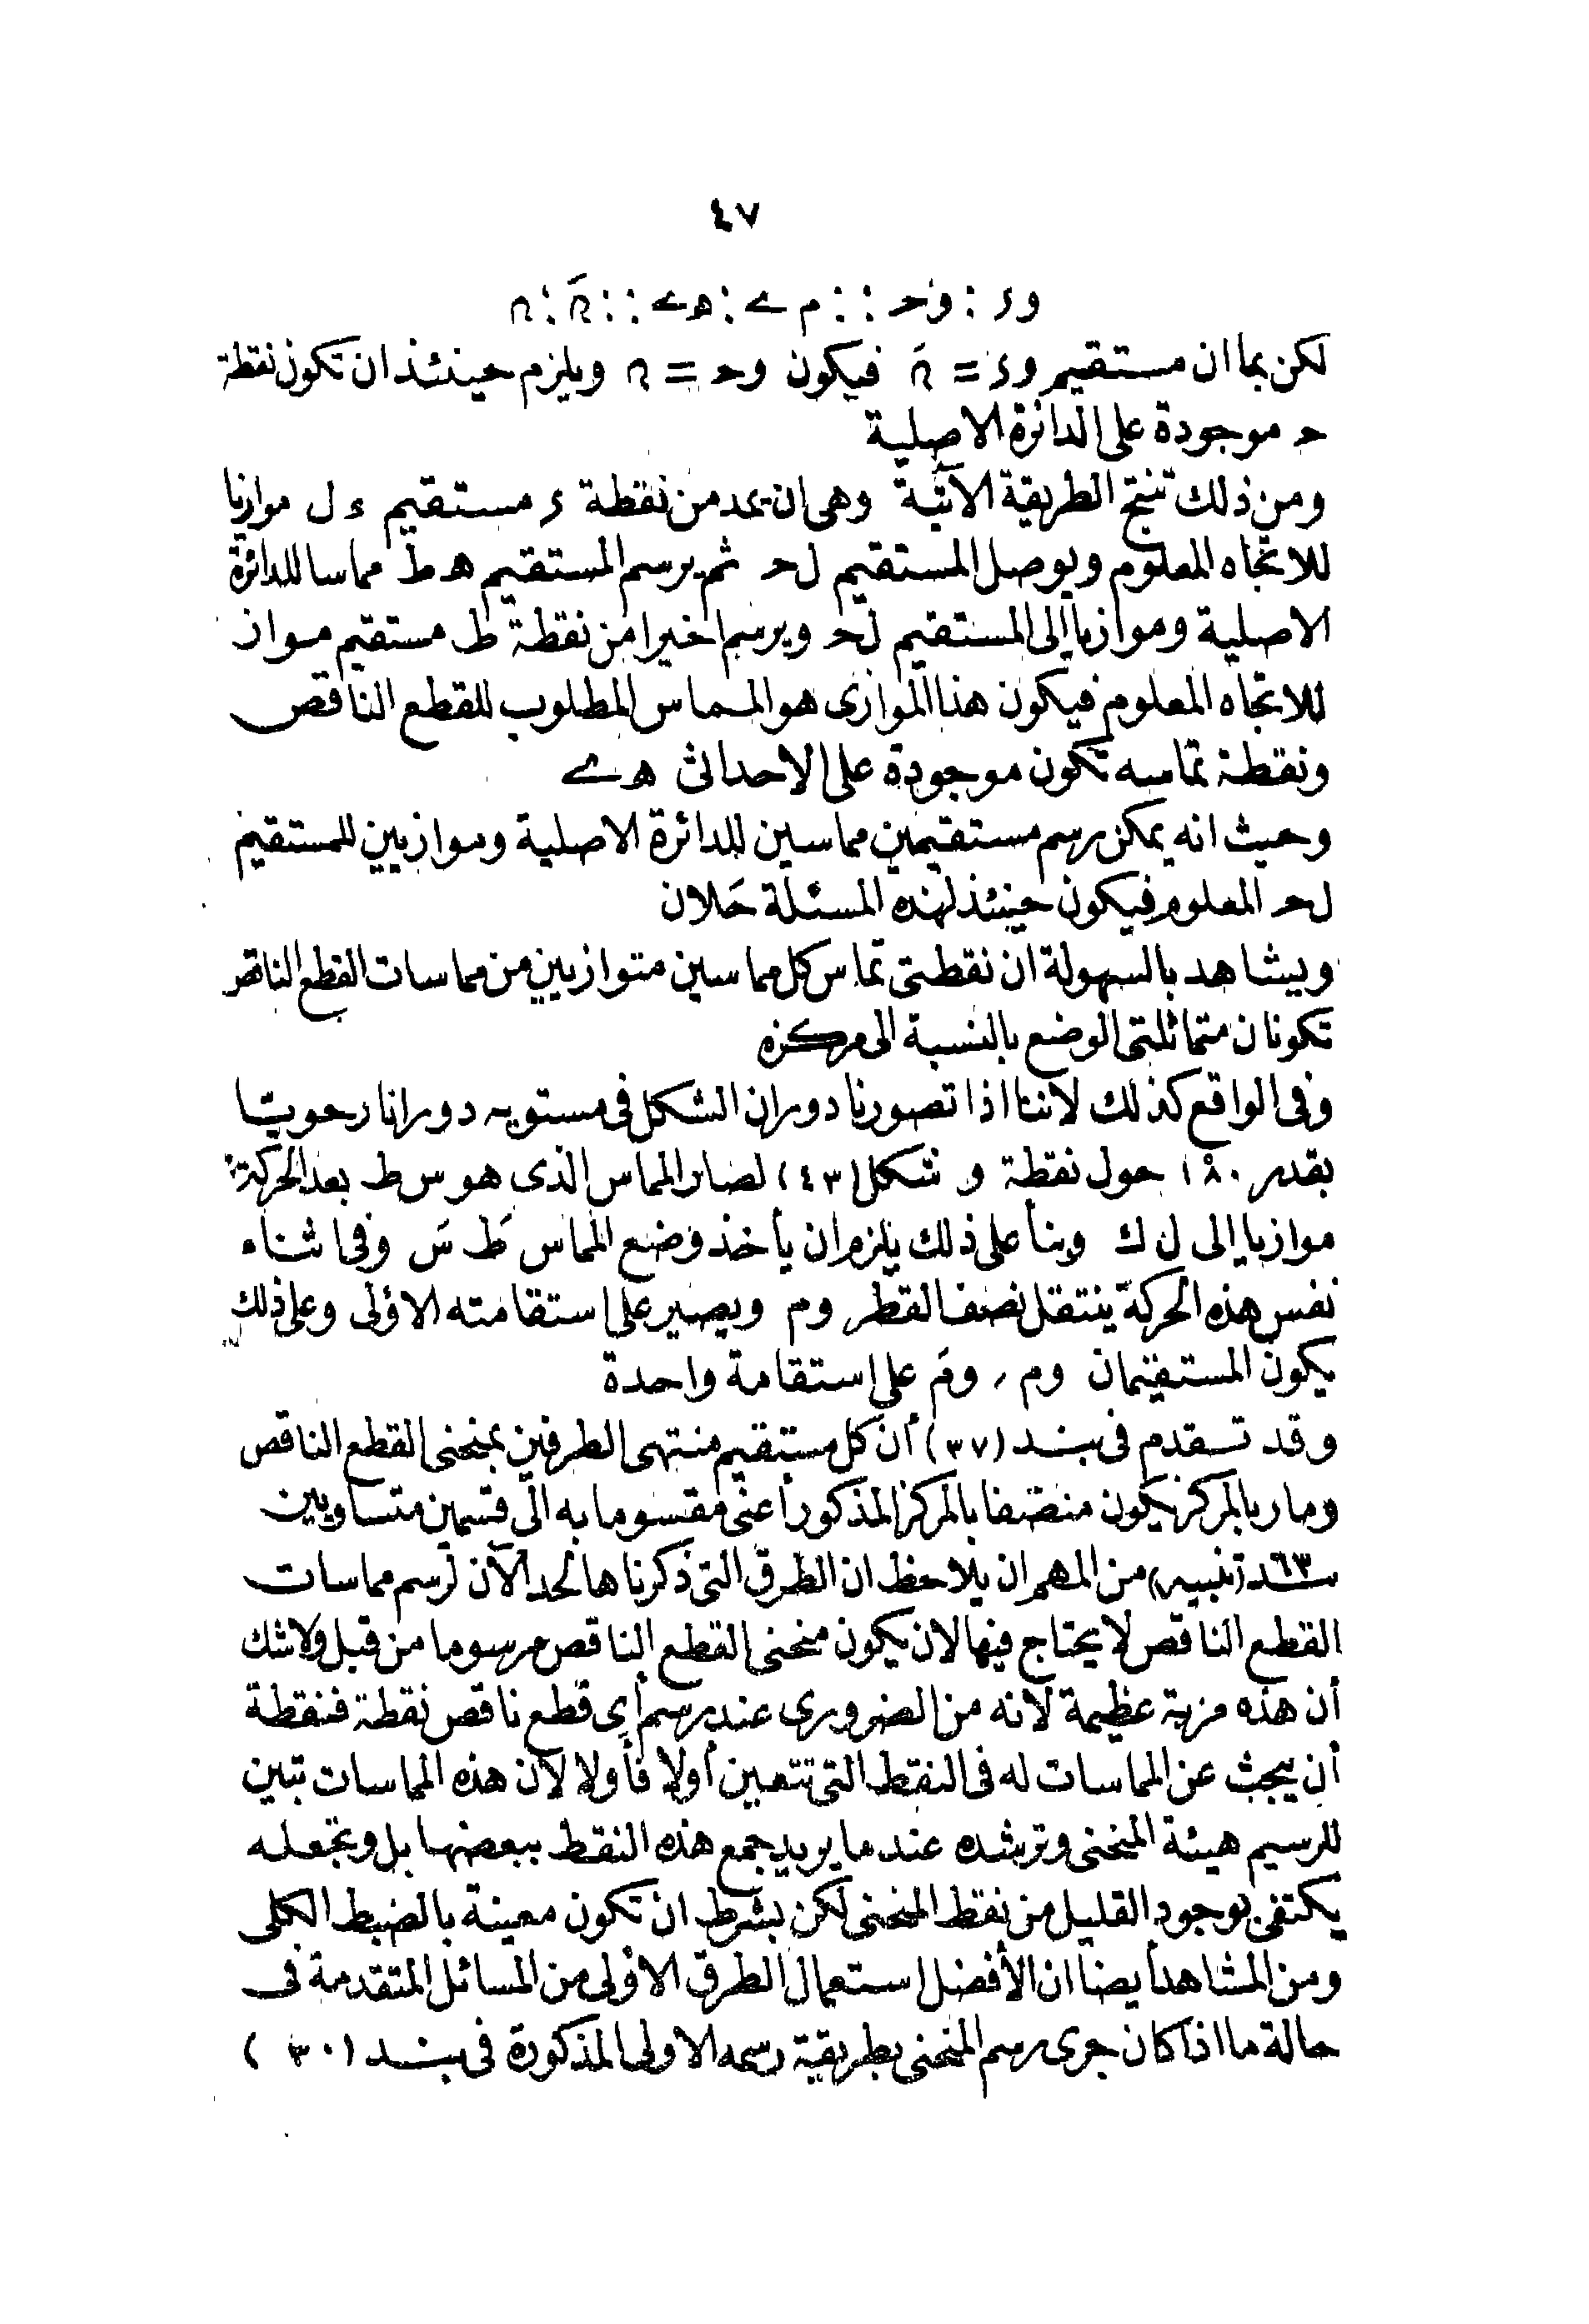 ٤٧
وء : وحـ :: م ے : هـ ے :: مَ : م
لكن بما ان مستقيم وء = مَ فيكون وحـ = م ويلزم حينئذ ان تكون نقطة
حـ موجودة على الدائرة الاصلية
ومن ذلك تنتج الطريقة الآتية وهى ان يمد من نقطة ء مستقيم ء ل موازيا
للاتجاه المعلوم ويوصل المستقيم ل حـ ثم يرسم المستقيم هـ ط مماسا للدائرة
الاصلية وموازيا الى المستقيم ل حـ ويرسم اخيرا من نقطة ط مستقيم مواز
للاتجاه المعلوم فيكون هذا الموازى هو المماس المطلوب للقطع الناقص
ونقطة تماسه تكون موجودة على الاحداثى هـ ے
وحيث انه يمكن رسم مستقيمين مماسين للدائرة الاصلية وموازيين للمستقيم
ل حـ المعلوم فيكون حينئذ لهذه المسئلة حَلان
ويشاهد بالسهولة ان نقطتى تماس كل مماسين متوازيين من مماسات القطع الناقص
تكونان متماثلتى الوضع بالنسبة الى مركزه
وفى الواقع كذلك لاننا اذا تصورنا دوران الشكل فى مستويه دورانا رحويّا
بقدر ١٨٠° حول نقطة و شكل (٤٣) لصار المماس الذى هو س ط بعد الحركة
موازيا الى ل ك وبنأ على ذلك يلزم ان يأخذ وضع المماس طَ سَ وفى اثناء
نفس هذه الحركة ينتقل نصف القطر وم ويصير على استقامته الاولى وعلى ذلك
يكون المستقيمان وم , ومَ على استقامة واحدة
وقد تقدم فى بند (٣٧) أن كل مستقيم منتهى الطرفين بمنحنى القطع الناقص
ومار بالمركز يكون منصفا بالمركز المذكور أعنى مقسوما به الى قسمين متساويين
بند ٦٣ (تنبيه) من المهم ان يلاحظ ان الطرق التى ذكرناها لحد الآن لرسم مماسات
القطع الناقص لا يحتاج فيها لان يكون منحنى القطع الناقص مرسوما من قبل ولاشك
أن هذه مزية عظيمة لانه من الضرورى عند رسم أى قطع ناقص نقطة فنقطة
أن يبحث عن المماسات له فى النقط التى تتعين أولا فأولا لان هذه المماسات تبين
للرسيم هيئة المنحنى وترشده عند ما يريد جمع هذه النقط ببعضها بل وتجعله
يكتفى بوجود القليل من نقط المنحنى لكن بشرط ان تكون معينة بالضبط الكلى
ومن المشاهد أيضا ان الأفضل استعمال الطرق الاولى من المسائل المتقدمة فى
حالة ما اذا كان جرى رسم المنحنى بطريقة رسمه الاولى المذكورة فى بند (٣٠)